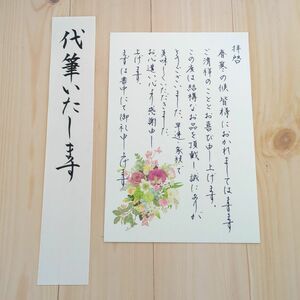 拝啓
春寒の候 皆様におかれましては益々
ご清祥のこととお喜び申し上げます。
この度は結構なお品を頂戴し誠にありが
とうございました。早速家族で
美味しくいただきました。
お心遣いに心より感謝申し
上げます。
まずは書中にて御礼申し上げます
代筆いたします